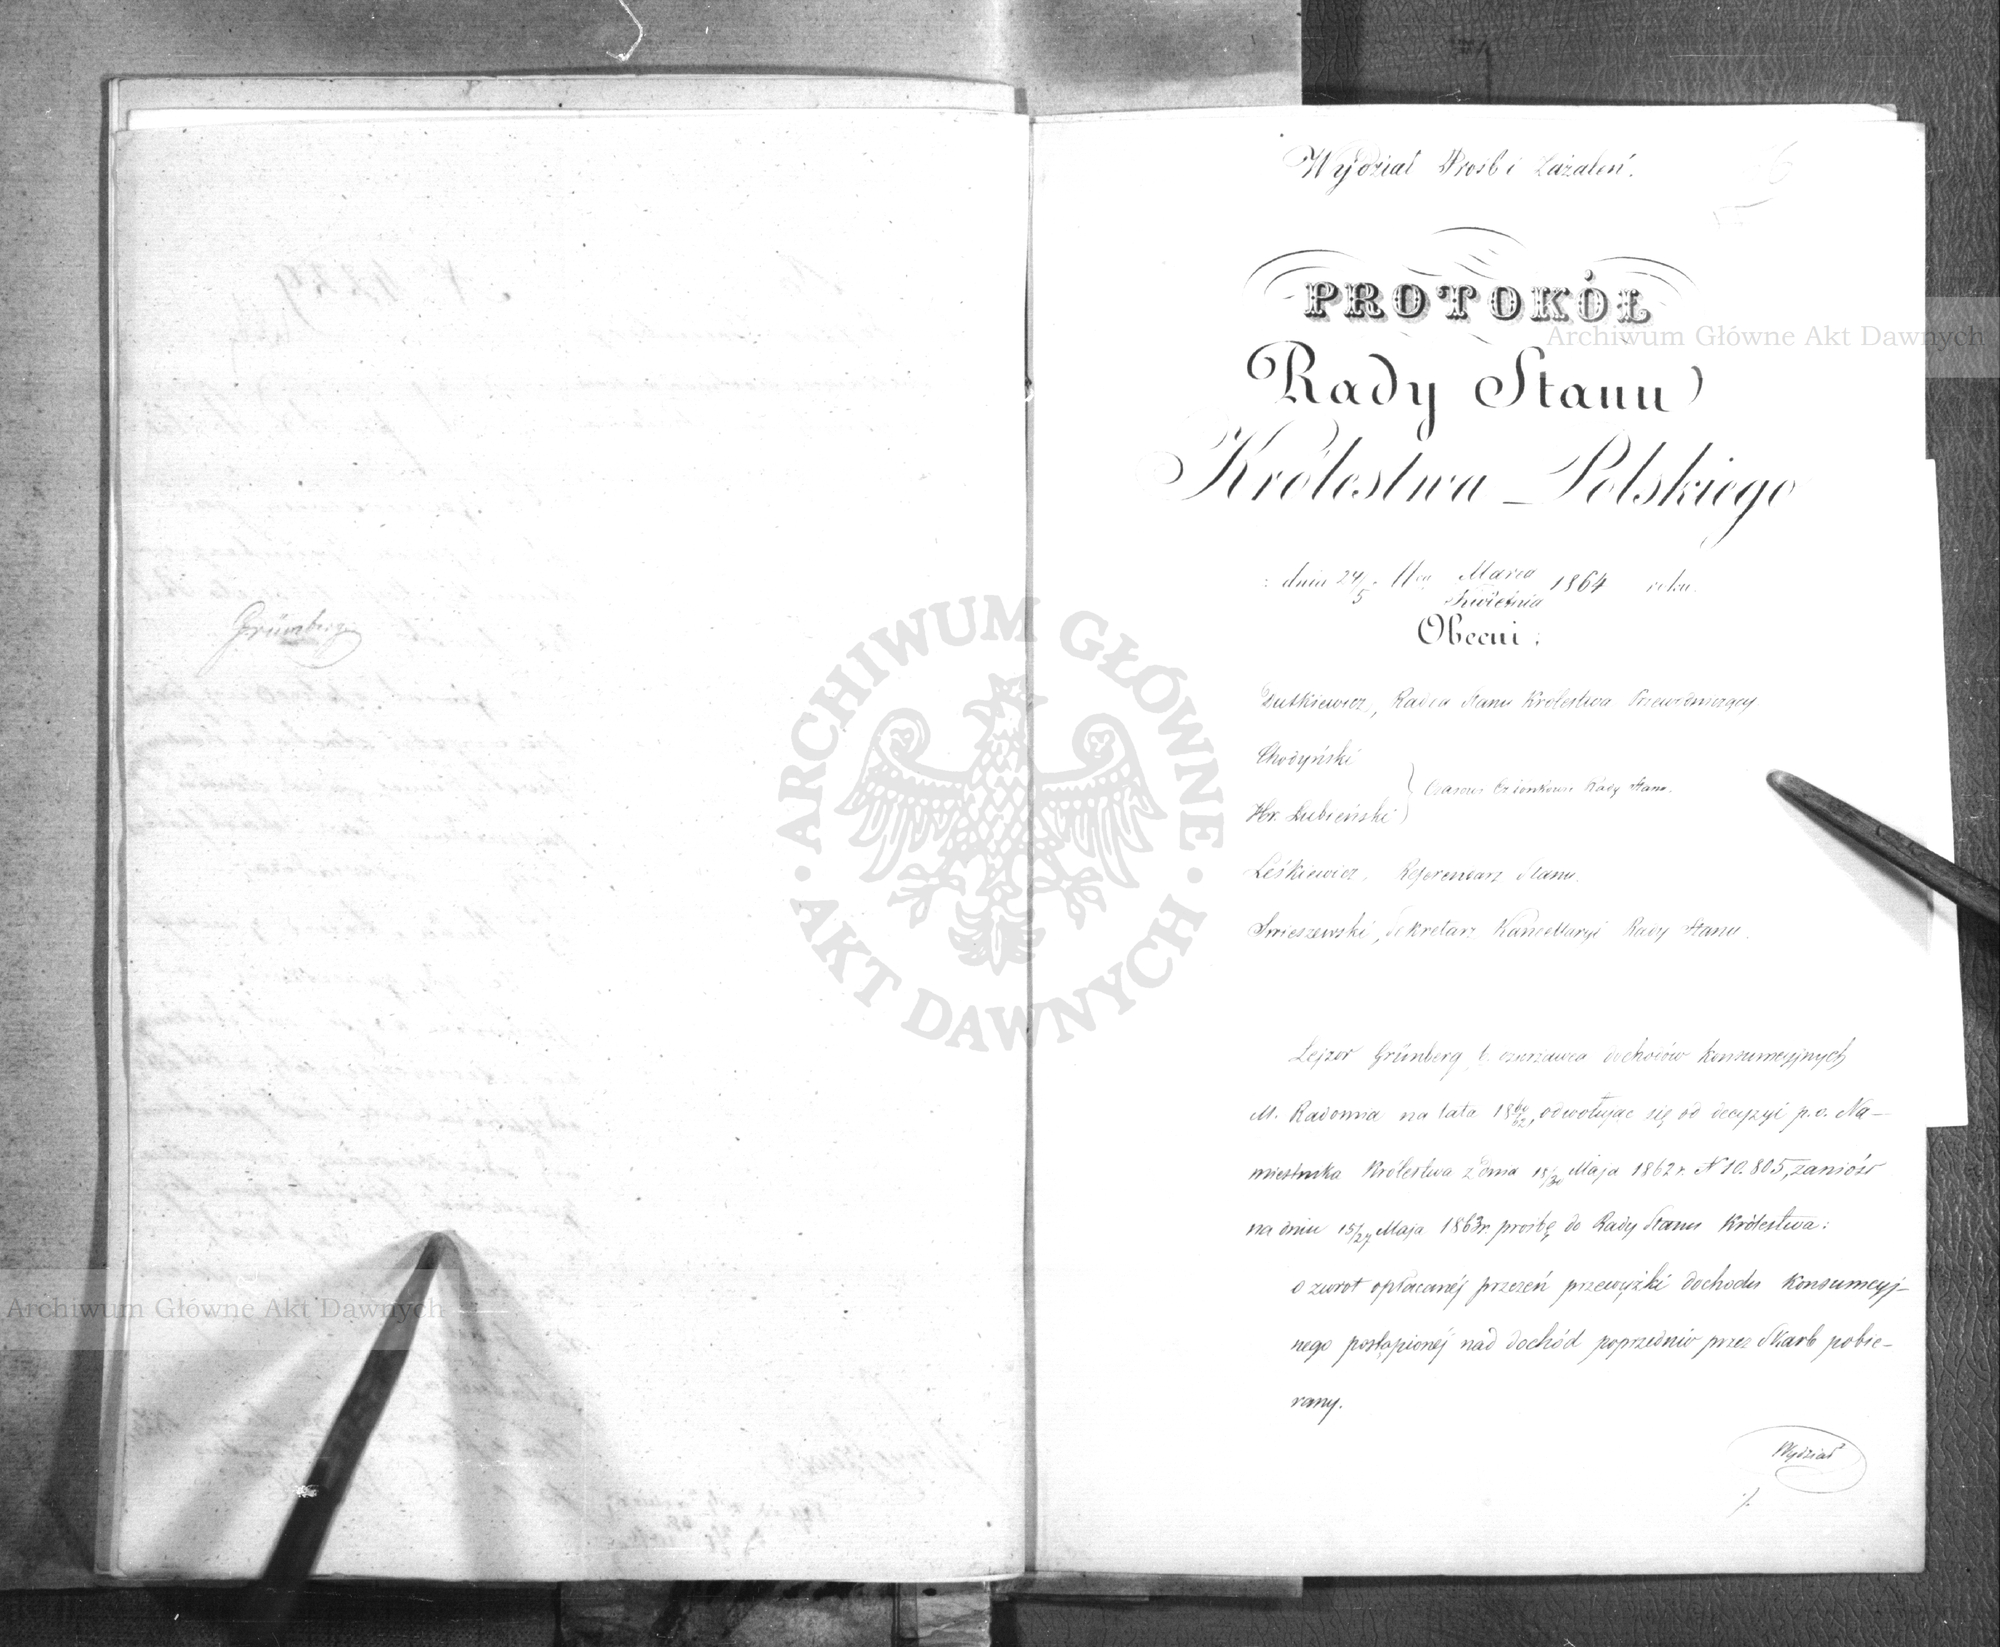 Grünberg
Wydział Prośb i Zażaleń.
PROTOKÓŁ
Rady Stanu
Królestwa Polskiego
dnia 24/5 Marca/Kwietnia 1864 roku.
Obecni:
Dutkiewicz, Radca Stanu Królestwa Przewodniczący
Chodyński
Hr. Łubieński } Czasowi Członkowie Rady Stanu.
Leśkiewicz, Referendarz Stanu.
Smieszewski, Sekretarz Kancellaryi Rady Stanu.
Lejzor Grünberg, b. dzierżawca dochodów konsumcyjnych
M. Radomia na lata 1860/62, odwołując się od decyzyi p.o. Na-
miestnika Królestwa z dnia 18/30 Maja 1862 r. N 10.805, zaniósł
na dniu 15/27 Maja 1863 r. prośbę do Rady Stanu Królestwa:
o zwrot opłacanéj przezeń przewyżki dochodu konsumcyj-
nego postąpionéj nad dochód poprzednio przez Skarb pobie-
rany.
Wydział
./.
Archiwum Główne Akt Dawnych
ARCHIWUM GŁÓWNE · AKT DAWNYCH ·
Archiwum Główne Akt Dawnych